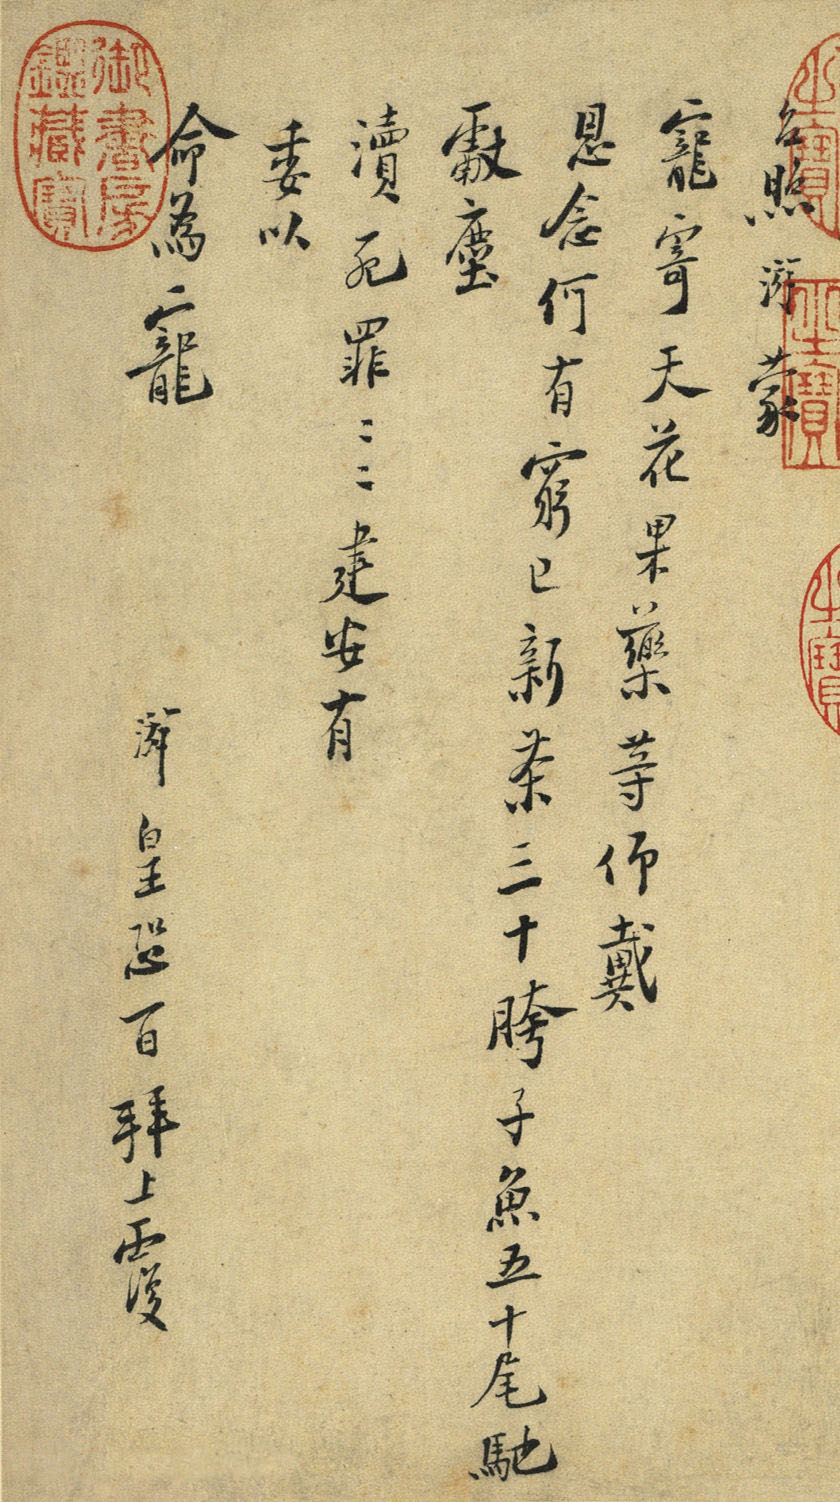 台照游蒙
寵寄天花果藥等仰戴
恩念何有窮已新茶三十胯子魚五十尾馳
獻塵
瀆死罪〻〻建安有
委以
命為寵 游皇恐百拜上覆
御書房
鑑藏寶